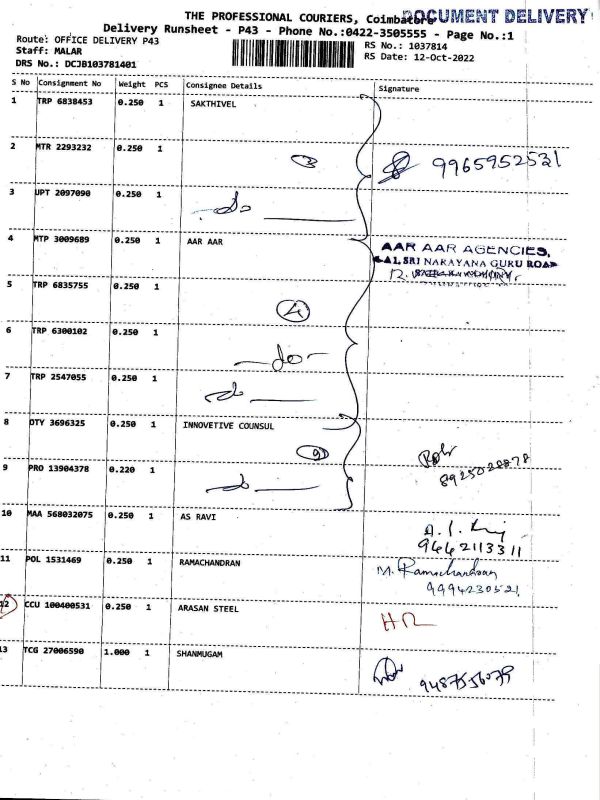 THE PROFESSIONAL COURIERS, Coimbatore
DOCUMENT DELIVERY
Delivery Runsheet - P43 - Phone No.:0422-3505555 - Page No.:1
Route: OFFICE DELIVERY P43
Staff: MALAR
DRS No.: DCJB103781401
RS No.: 1037814
RS Date: 12-Oct-2022
S No Consignment No Weight PCS Consignee Details Signature
1 TRP 6838453 0.250 1 SAKTHIVEL
2 MTR 2293232 0.250 1 3 9965952531
3 UPT 2097090 0.250 1 -do-
4 MTP 3009689 0.250 1 AAR AAR
AAR AAR AGENCIES,
SRI NARAYANA GURU ROAD
5 TRP 6835755 0.250 1 4
6 TRP 6300102 0.250 1 -do-
7 TRP 2547055 0.250 1 do
8 DTY 3696325 0.250 1 INNOVETIVE COUNSUL
9 PRO 13904378 0.220 1 do
8925028878
10 MAA 568032075 0.250 1 AS RAVI
9442113311
11 POL 1531469 0.250 1 RAMACHANDRAN M. Ramachandran
9994230521
12 CCU 100400531 0.250 1 ARASAN STEEL
13 TCG 27006590 1.000 1 SHANMUGAM
9487556079